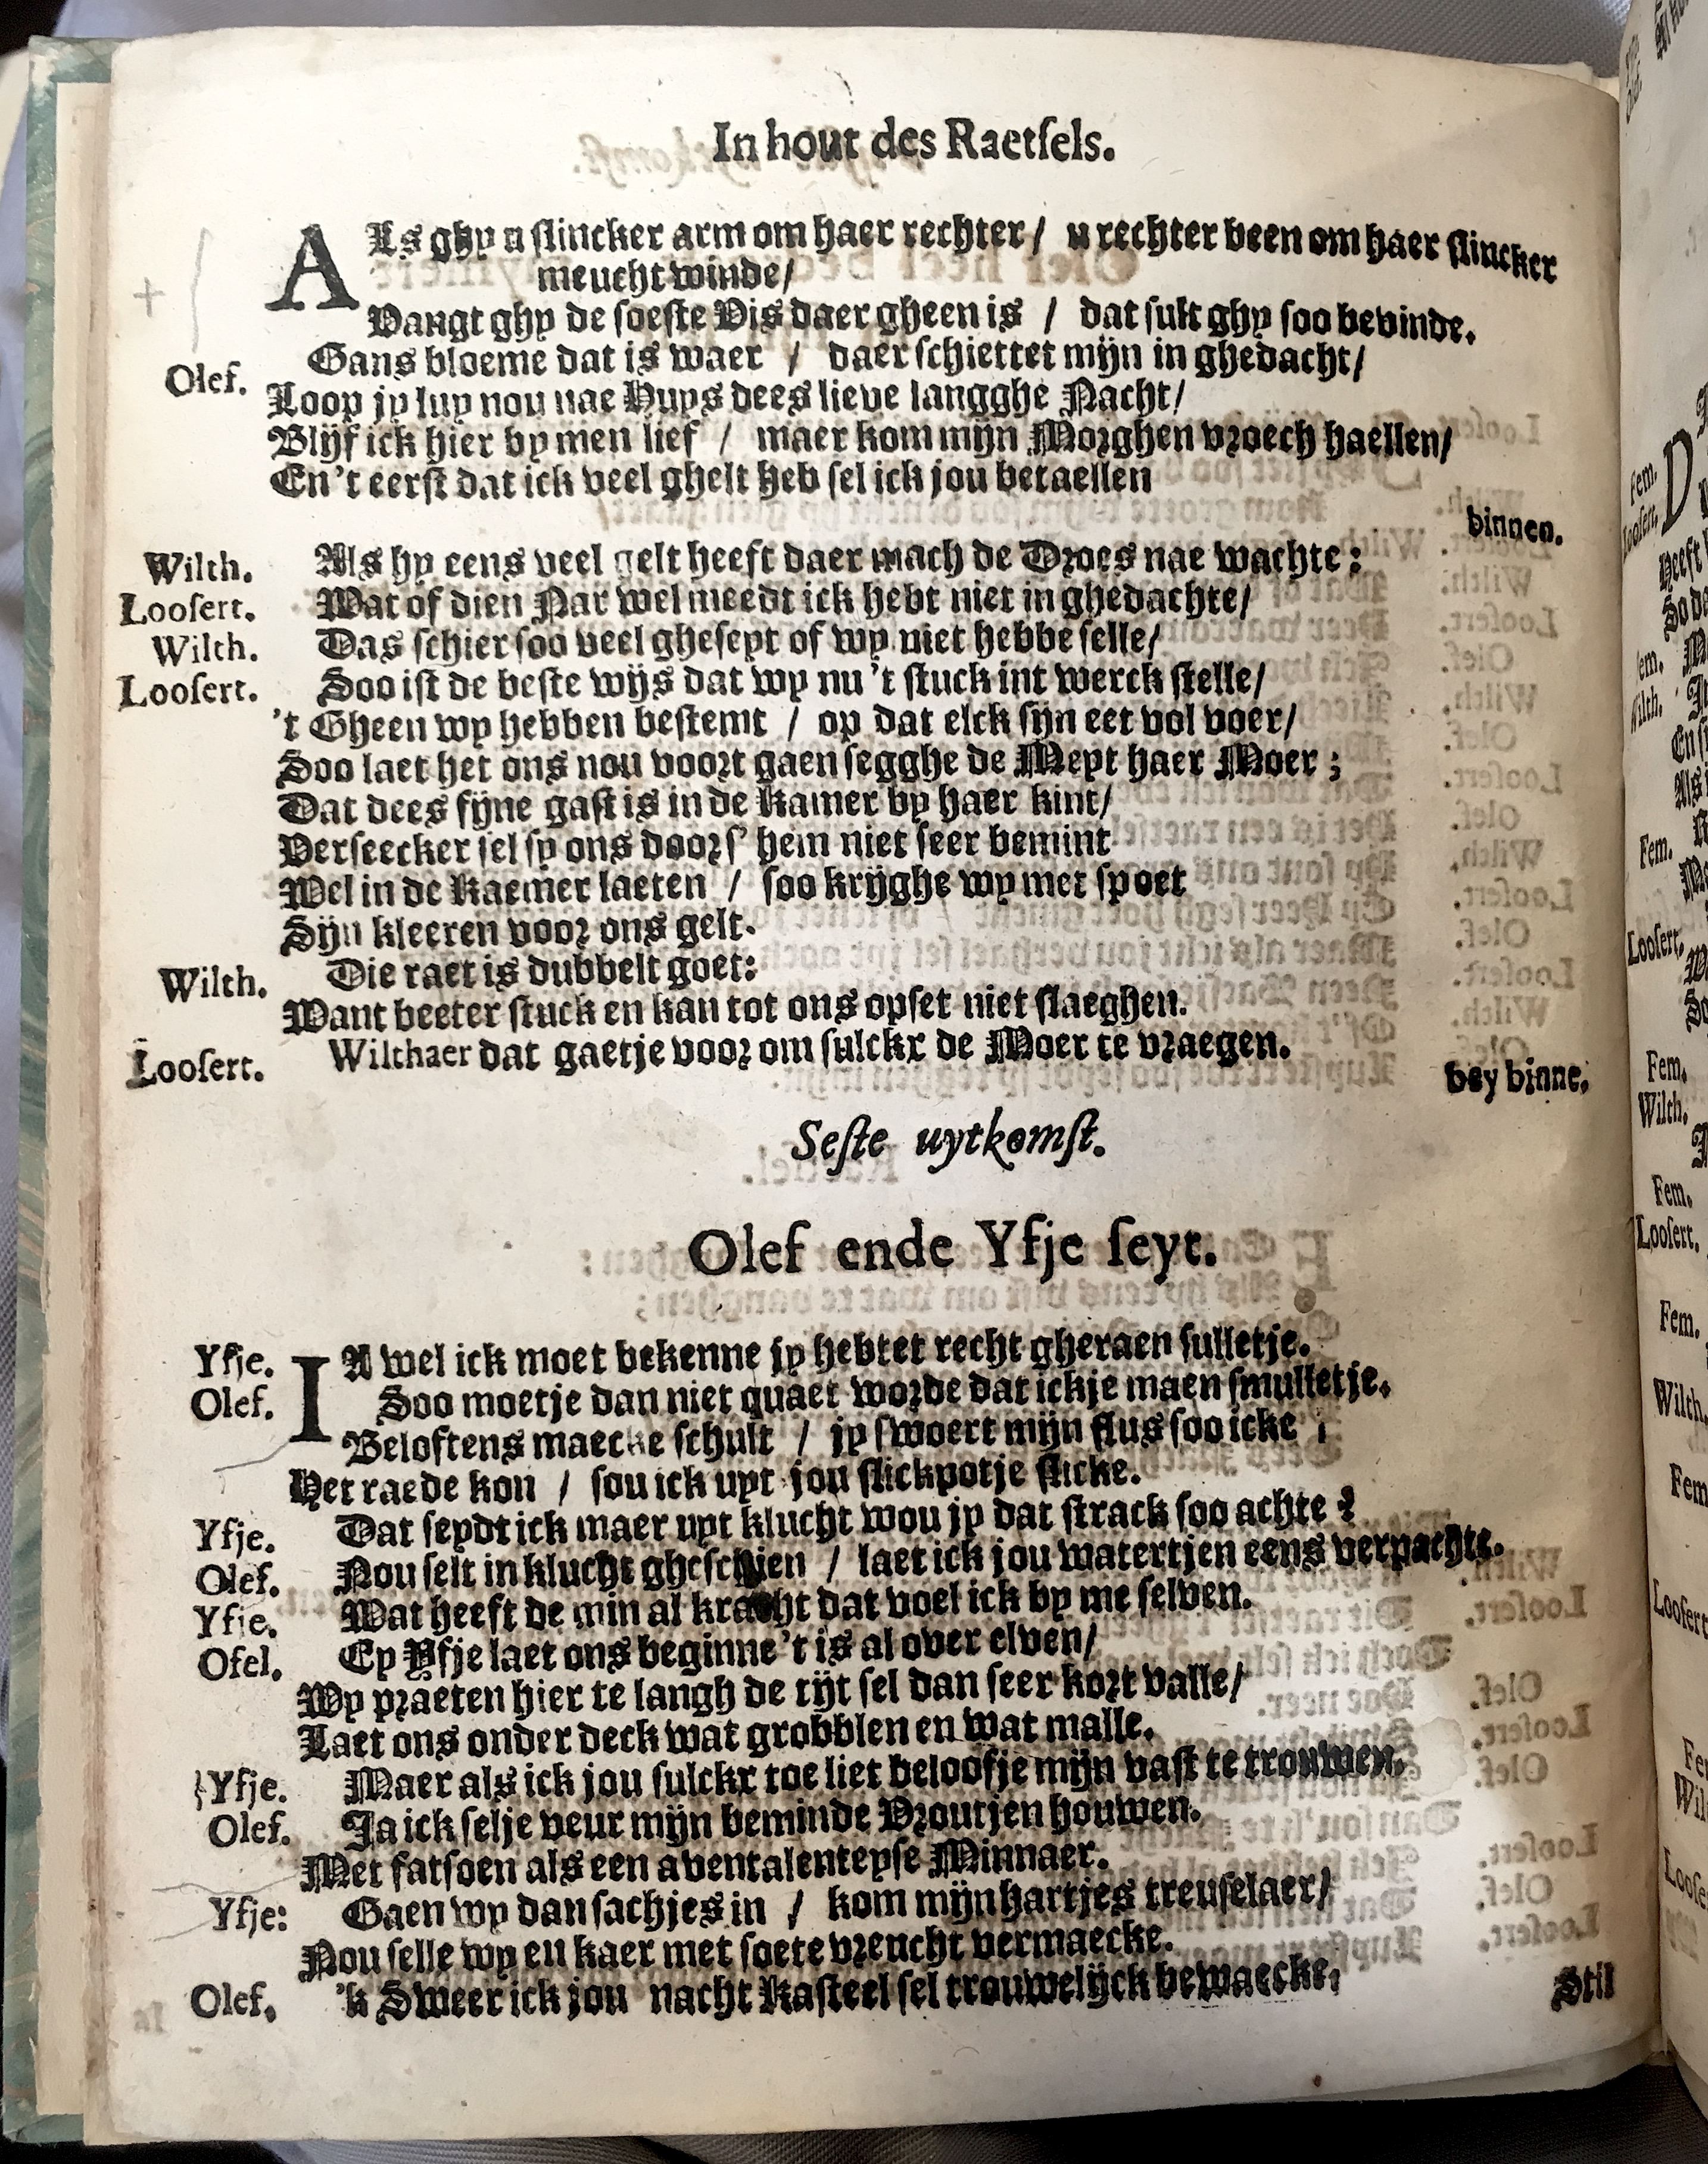 In hout des Raetſels.
ALs ghy u ſlincker arm om haer rechter / u rechter been om haer ſlincker
meucht winde /
Vangt ghy de ſoeſte Vis daer gheen is / dat ſult ghy ſoo bevinde.
Olef. Gans bloeme dat is waer / daer ſchiettet mijn in ghedacht /
Loop jy luy nou nae Huys dees lieve langghe Nacht /
Blijf ick hier by men lief / maer kom mijn Morghen vroech haellen /
En 't eerſt dat ick veel ghelt heb ſel ick jou betaellen
binnen.
Wilth. Als hy eens veel gelt heeft daer mach de Droes nae wachte :
Looſert. Wat of dien Nar wel meedt ick hebt niet in ghedachte /
Wilth. Das ſchier ſoo veel gheſeyt of wy niet hebbe ſelle /
Looſert. Soo iſt de beſte wijs dat wy nu 't ſtuck int werck ſtelle /
't Gheen wy hebben beſtemt / op dat elck ſijn eet vol voer /
Soo laet het ons nou voort gaen ſegghe de Meyt haer Moer ;
Dat dees fijne gaſt is in de Kamer by haer kint /
Verſeecker ſel ſy ons doorſ' hem niet ſeer bemint
Wel in de Kaemer laeten / ſoo krijghe wy met ſpoet
Sijn kleeren voor ons gelt.
Wilth. Die raet is dubbelt goet:
Want beeter ſtuck en kan tot ons opſet niet ſlaeghen.
Looſert. Wilthaer dat gaetje voor om ſulckx de Moer te vraegen.
bey binne.
Seſte uytkomſt.
Olef ende Yfje ſeyt.
Yfje. IA wel ick moet bekenne jy hebtet recht gheraen ſulletje.
Olef. Soo moetje dan niet quaet worde dat ickje maen ſmulletje.
Beloftens maecke ſchult / jy ſwoert mijn flus ſoo icke
Het raede kon / ſou ick uyt jou ſlickpotje ſlicke.
Yfje. Dat ſeydt ick maer uyt klucht wou jy dat ſtrack ſoo achte ?
Olef. Nou ſelt in klucht gheſchien / laet ick jou watertjen eens verpachte.
Yfje. Wat heeft de min al kracht dat voel ick by me ſelven.
Ofel. Ey Yfje laet ons beginne 't is al over elven /
Wy praeten hier te langh de tijt ſel dan ſeer kort valle /
Laet ons onder deck wat grobblen en wat malle.
Yfje. Maer als ick jou ſulckx toe liet beloofje mijn vaſt te trouwen.
Olef. Ja ick ſelje veur mijn beminde Vroutjen houwen.
Met fatſoen als een aventalenteyſe Minnaer.
Yfje: Gaen wy dan ſachjes in / kom mijn hartjes treuſelaer /
Nou ſelle wy ell kaer met ſoete vreucht vermaecke.
Olef. 'k Sweer ick jou nacht Kaſteel ſel trouwelijck bewaecke,
Stil